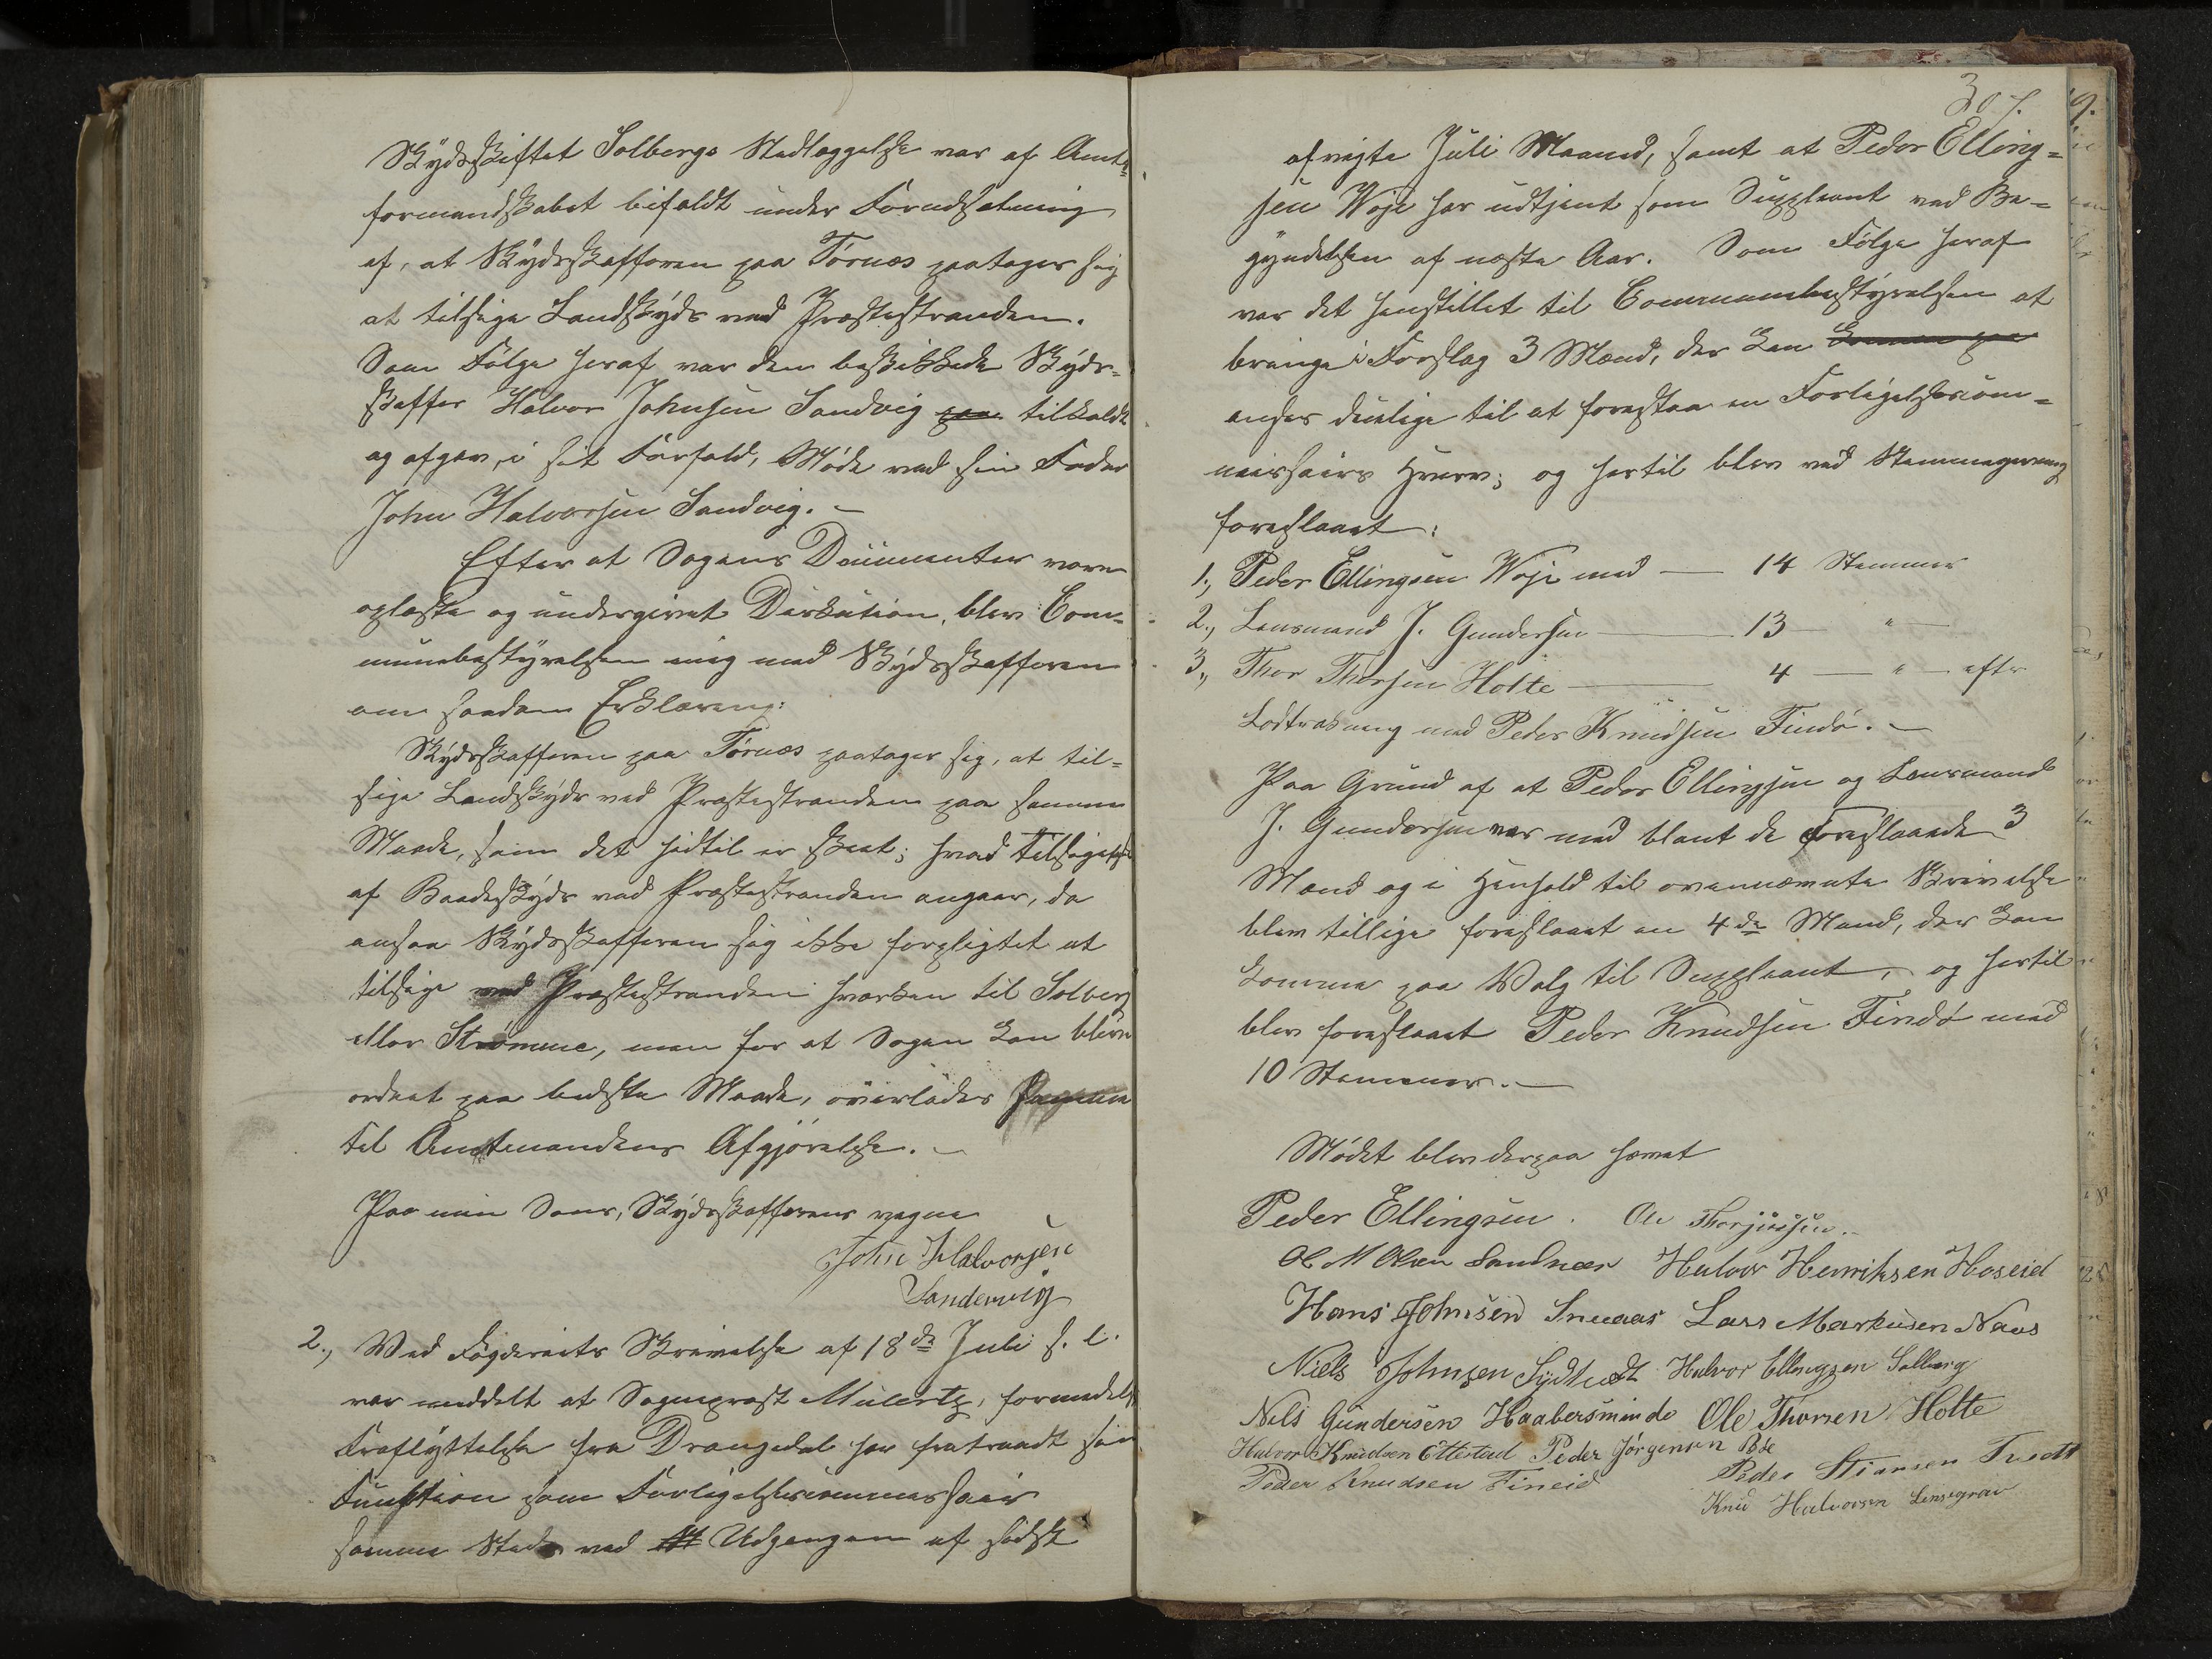 Skydsskiftet Solbergs Nedlæggelse var af Amts-
formandskabet bifaldt under Forudsætning
af, at Skydsskafferen paa Tørnes paatager sig
at tilsige Landskyds ved Præstestranden.
Som Følge heraf var den beskikkede Skyds-
skaffer Halvor Johnsen Sandvig paa tilkaldt
og afgav, i sit Forfald, Møde ved sin Fader
John Halvorsen Sandvig. —
Efter at Sagens Documenter vare
oplæste og undergivet Diskution, blev Com-
munebestyrelsen enig med Skydsskafferen
om saadan Erklæring:
Skydsskafferen paa Tørnes paatager sig, at til-
sige Landskyds ved Præstestranden paa samme
Maade, som det hidtil er skeet; hvad Tilsigelse
af Baadskyds ved Præstestranden angaar, da
ansaa Skydsskafferen sig ikke forpligtet at
tilsige ved Præstestranden hverken til Solberg
eller Strømme, men for at Sagen kan blive
ordnet paa bedste Maade, overlades
til Amtmandens Afgjørelse. —
Paa min Søns, Skydsskafferens vegne
John Halvorsen
Sandervig
2., Ved Fogderiets Skrivelse af 18de Juli s. l.
var meddelt at Sogneprest Mülertz, formedelst
Fraflyttelse fra Drangedal har fratraadt sin
Funktion som Forligelsescommissair
samme Steds ved Udgangen af sidst
307.
afvigte Juli Maaned, samt at Peder Elling-
sen Woje har udtjent som Suppleant ved Be-
gyndelsen af næste Aar. Som Følge heraf
var det henstillet til Communebestyrelsen at
bringe i Forslag 3 Mænd, der kan komme paa
ansees duelige til at forestaa en Forligelsescom-
missairs Hverv; og hertil blev ved Stemmegivning
foreslaaet:
1., Peder Ellingsen Woje med — 14 Stemmer
2., Lensmand J. Gundersen — 13 — " —
3., Thor Thorsen Holte — 4 — " — efter
Lodtrækning med Peder Knudsen Findø. —
Paa Grund af at Peder Ellingsen og Lensmand
J. Gundersen var med blant de foreslaaede 3
Mænd og i Henhold til ovennævnte Skrivelse
blev tillige foreslaaet en 4de Mand, der kan
komme paa Valg til Suppleant, og hertil
blev foreslaaet Peder Knudsen Findø med
10 Stemmer. —
Mødet blev derpaa hævet
Peder Ellingsen. Ole Thorjusen.
Ol M Olsen Sandnæs Halvor Henriksen Hoseid
Hans Johnsen Lars Markusen Naas
Niels Johnsen Halvor Ellingsen Solberg
Nels Gundersen Haabersminde Ole Thorsen Holte
Halvor Knudsen Ettestad Peder Jørgensen Bøe
Peder Knudsen Fineid Peder Stiansen Tvedt
Knud Halvorsen